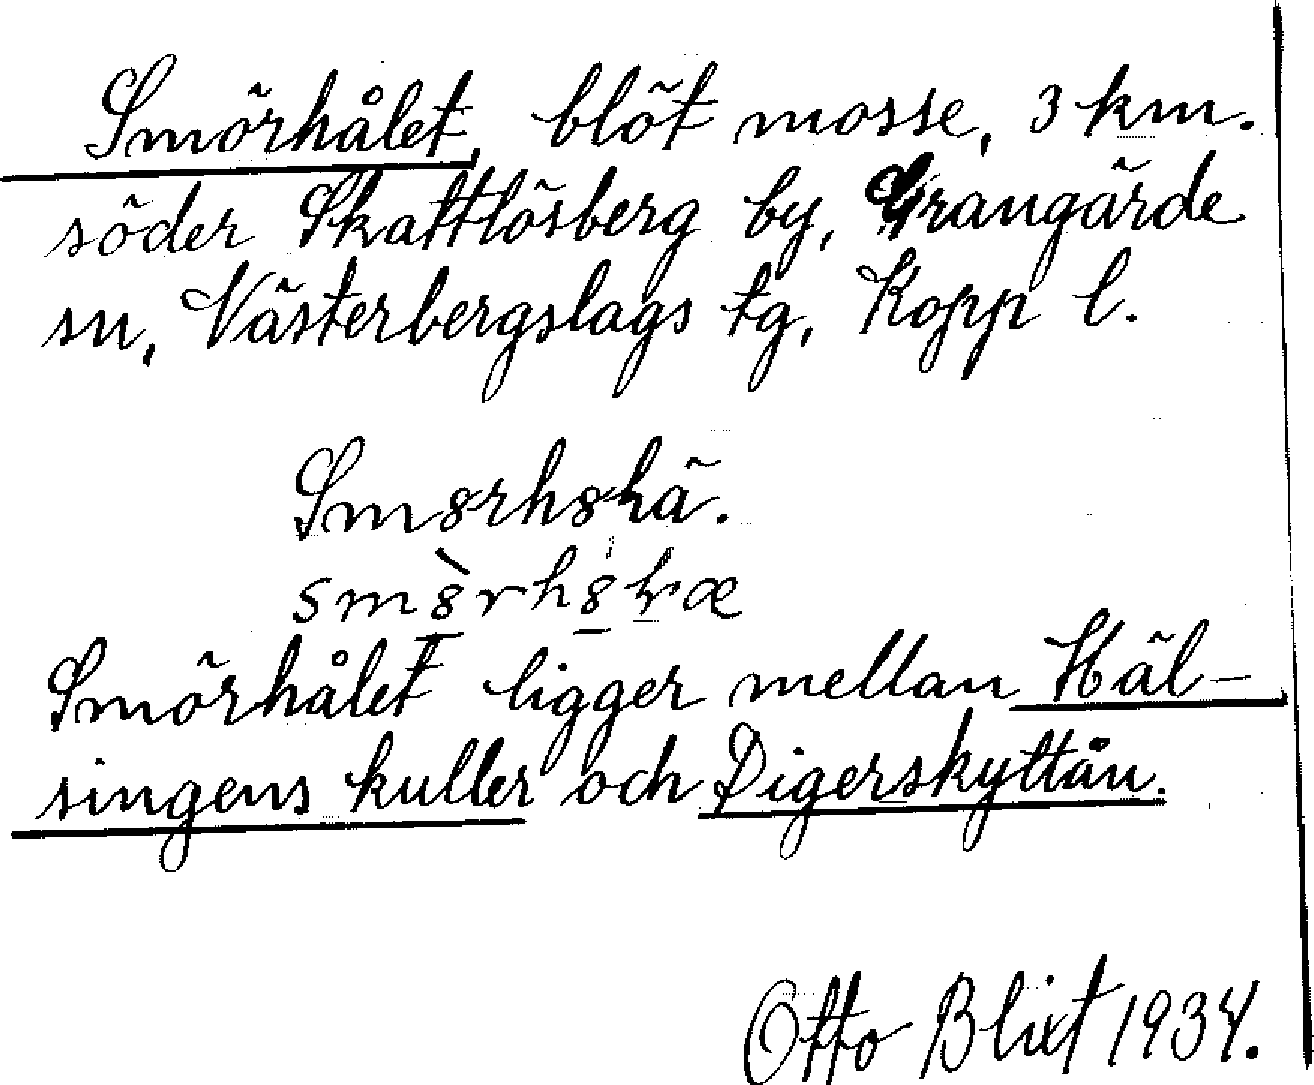 Smörhålet, blöt mosse, 3 km.
söder Skattlösberg by, Grangärde
sn, Västerbergslags tg, Kopp l.
Smörhålet ligger mellan Häl-
singens kuller och Digerskyttån.
Otto Blixt 1934.